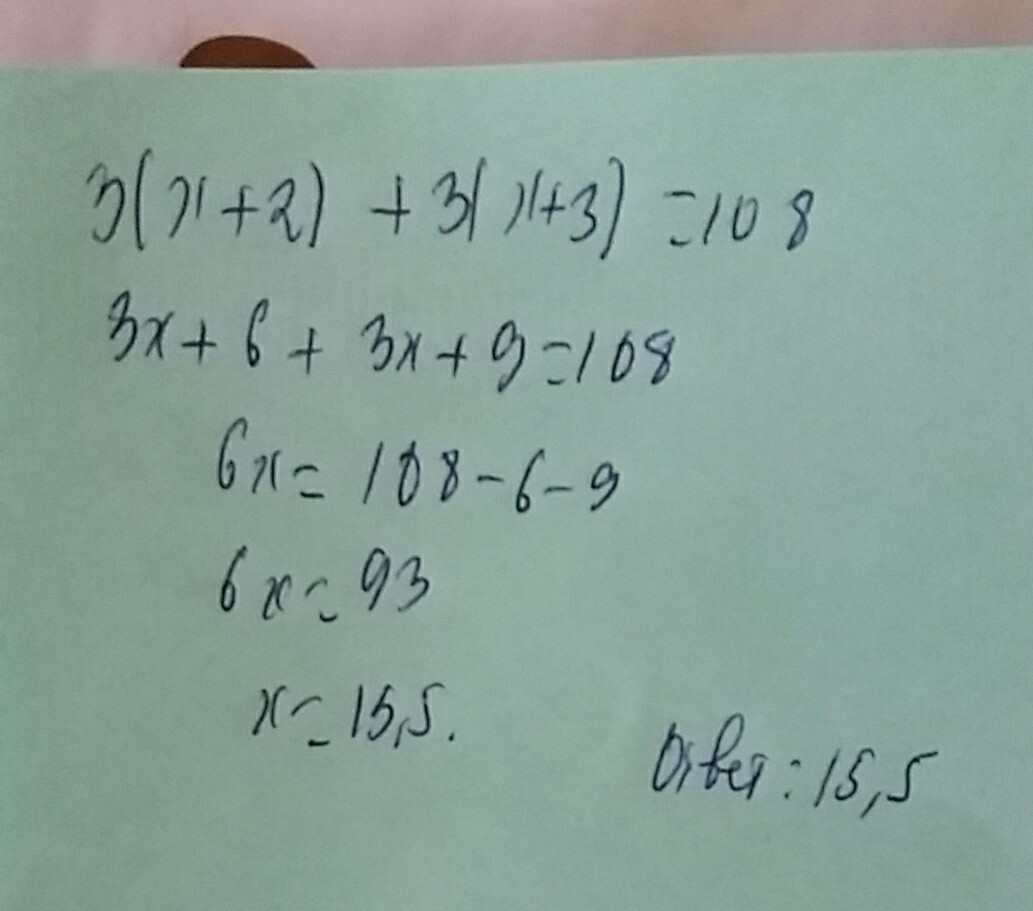 3(x+2) +3(x+3) =108
3x+6+3x+9=108
6x=108-6-9
6x=93
x=15,5.
Ответ:15,5